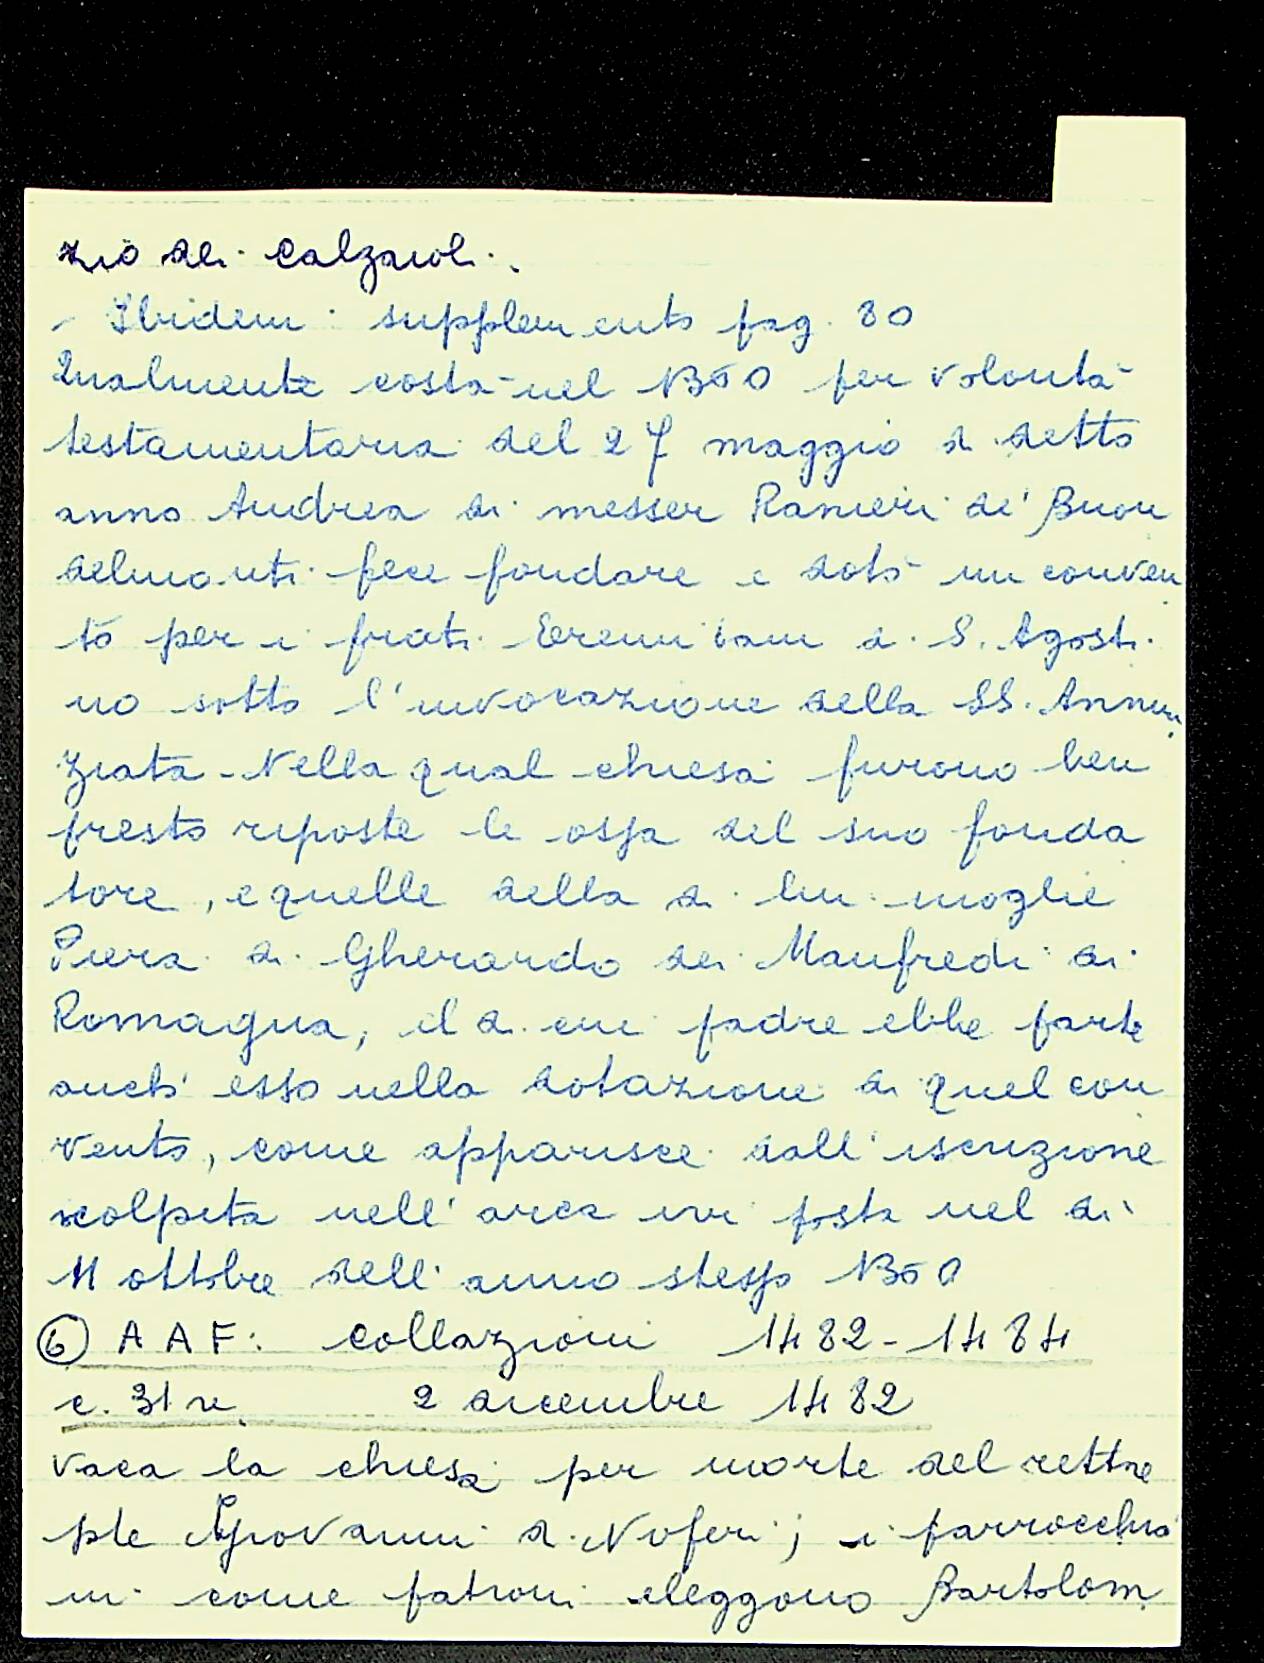 zio dei Calzaioli.
- Ibidem: supplemento pag. 80
Qualmente costà nel 1350 per volontà
testamentaria del 27 maggio di detto
anno Andrea di messer Ranieri de' Buon
delmonti fece fondare e dotò un conven
to per i frati Eremitani di S. Agosti
no sotto l'invocazione della SS. Annun
ziata. Nella qual chiesa furono ben
presto riposte le ossa del suo fonda
tore, e quelle della di lui moglie
Piera di Gherardo dei Manfredi di
Romagna, il di cui padre ebbe parte
anch'esso nella dotazione di quel con
vento, come apparisce dall'iscrizione
scolpita nell'arca ivi posta nel dì
11 ottobre dell'anno stesso 1350
⑥ AAF: Collazioni 1482-1484
c. 31 r. 2 dicembre 1482
vaca la chiesa per morte del rettore
pte Giovanni di Noferi; i parrocchia
ni come patroni eleggono Bartolom